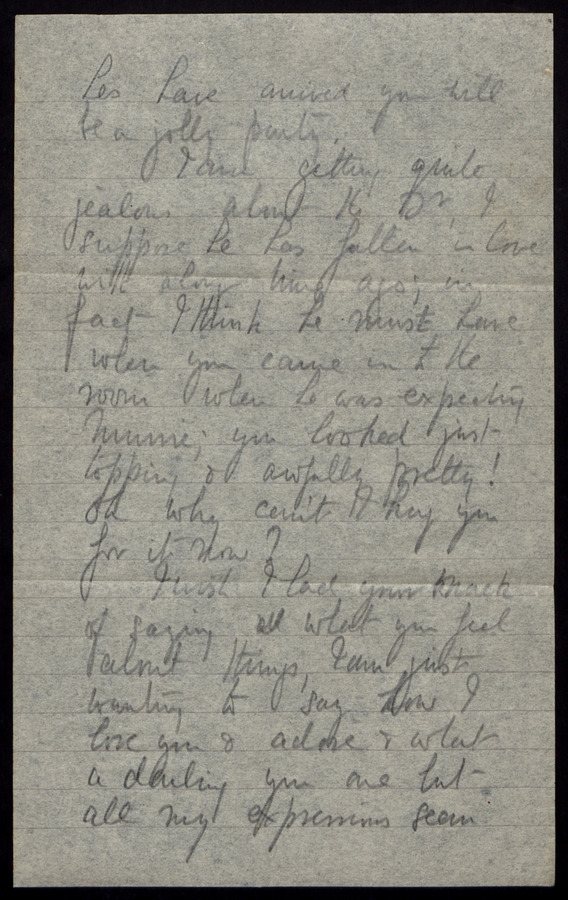 Les have arrived you will
be a jolly party.
I am getting quite
jealous about the Dr, I
suppose he has fallen in love
with along time ago; in
fact I think he must have
when you came in to the
room when he was expecting
Minnie; you looked just
topping & awfully pretty!
Oh why can't I hug you
for it now?
I wish I had your knack
of saying all what you feel
about things, I am just
wanting to say how I
love you & adore & what
a darling you are but
all my expressions seem